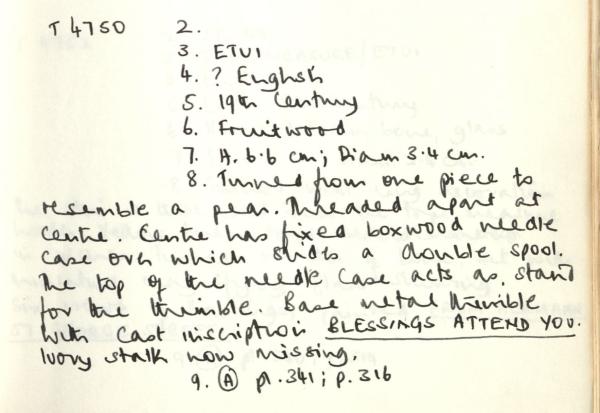 T 4750 2.
3. ETUI
4. ? English
5. 19th Century
6. Fruitwood
7. H. 6.6 cm; Diam 3.4 cm.
8. Turned from one piece to
resemble a pear. Threaded apart at
centre. Centre has fixed boxwood needle
case over which slides a double spool.
The top of the needle case acts as stand
for the thimble. Base metal thimble
with cast inscription BLESSINGS ATTEND YOU.
Ivory stalk now missing.
9. Ⓐ pl. 341; p. 316